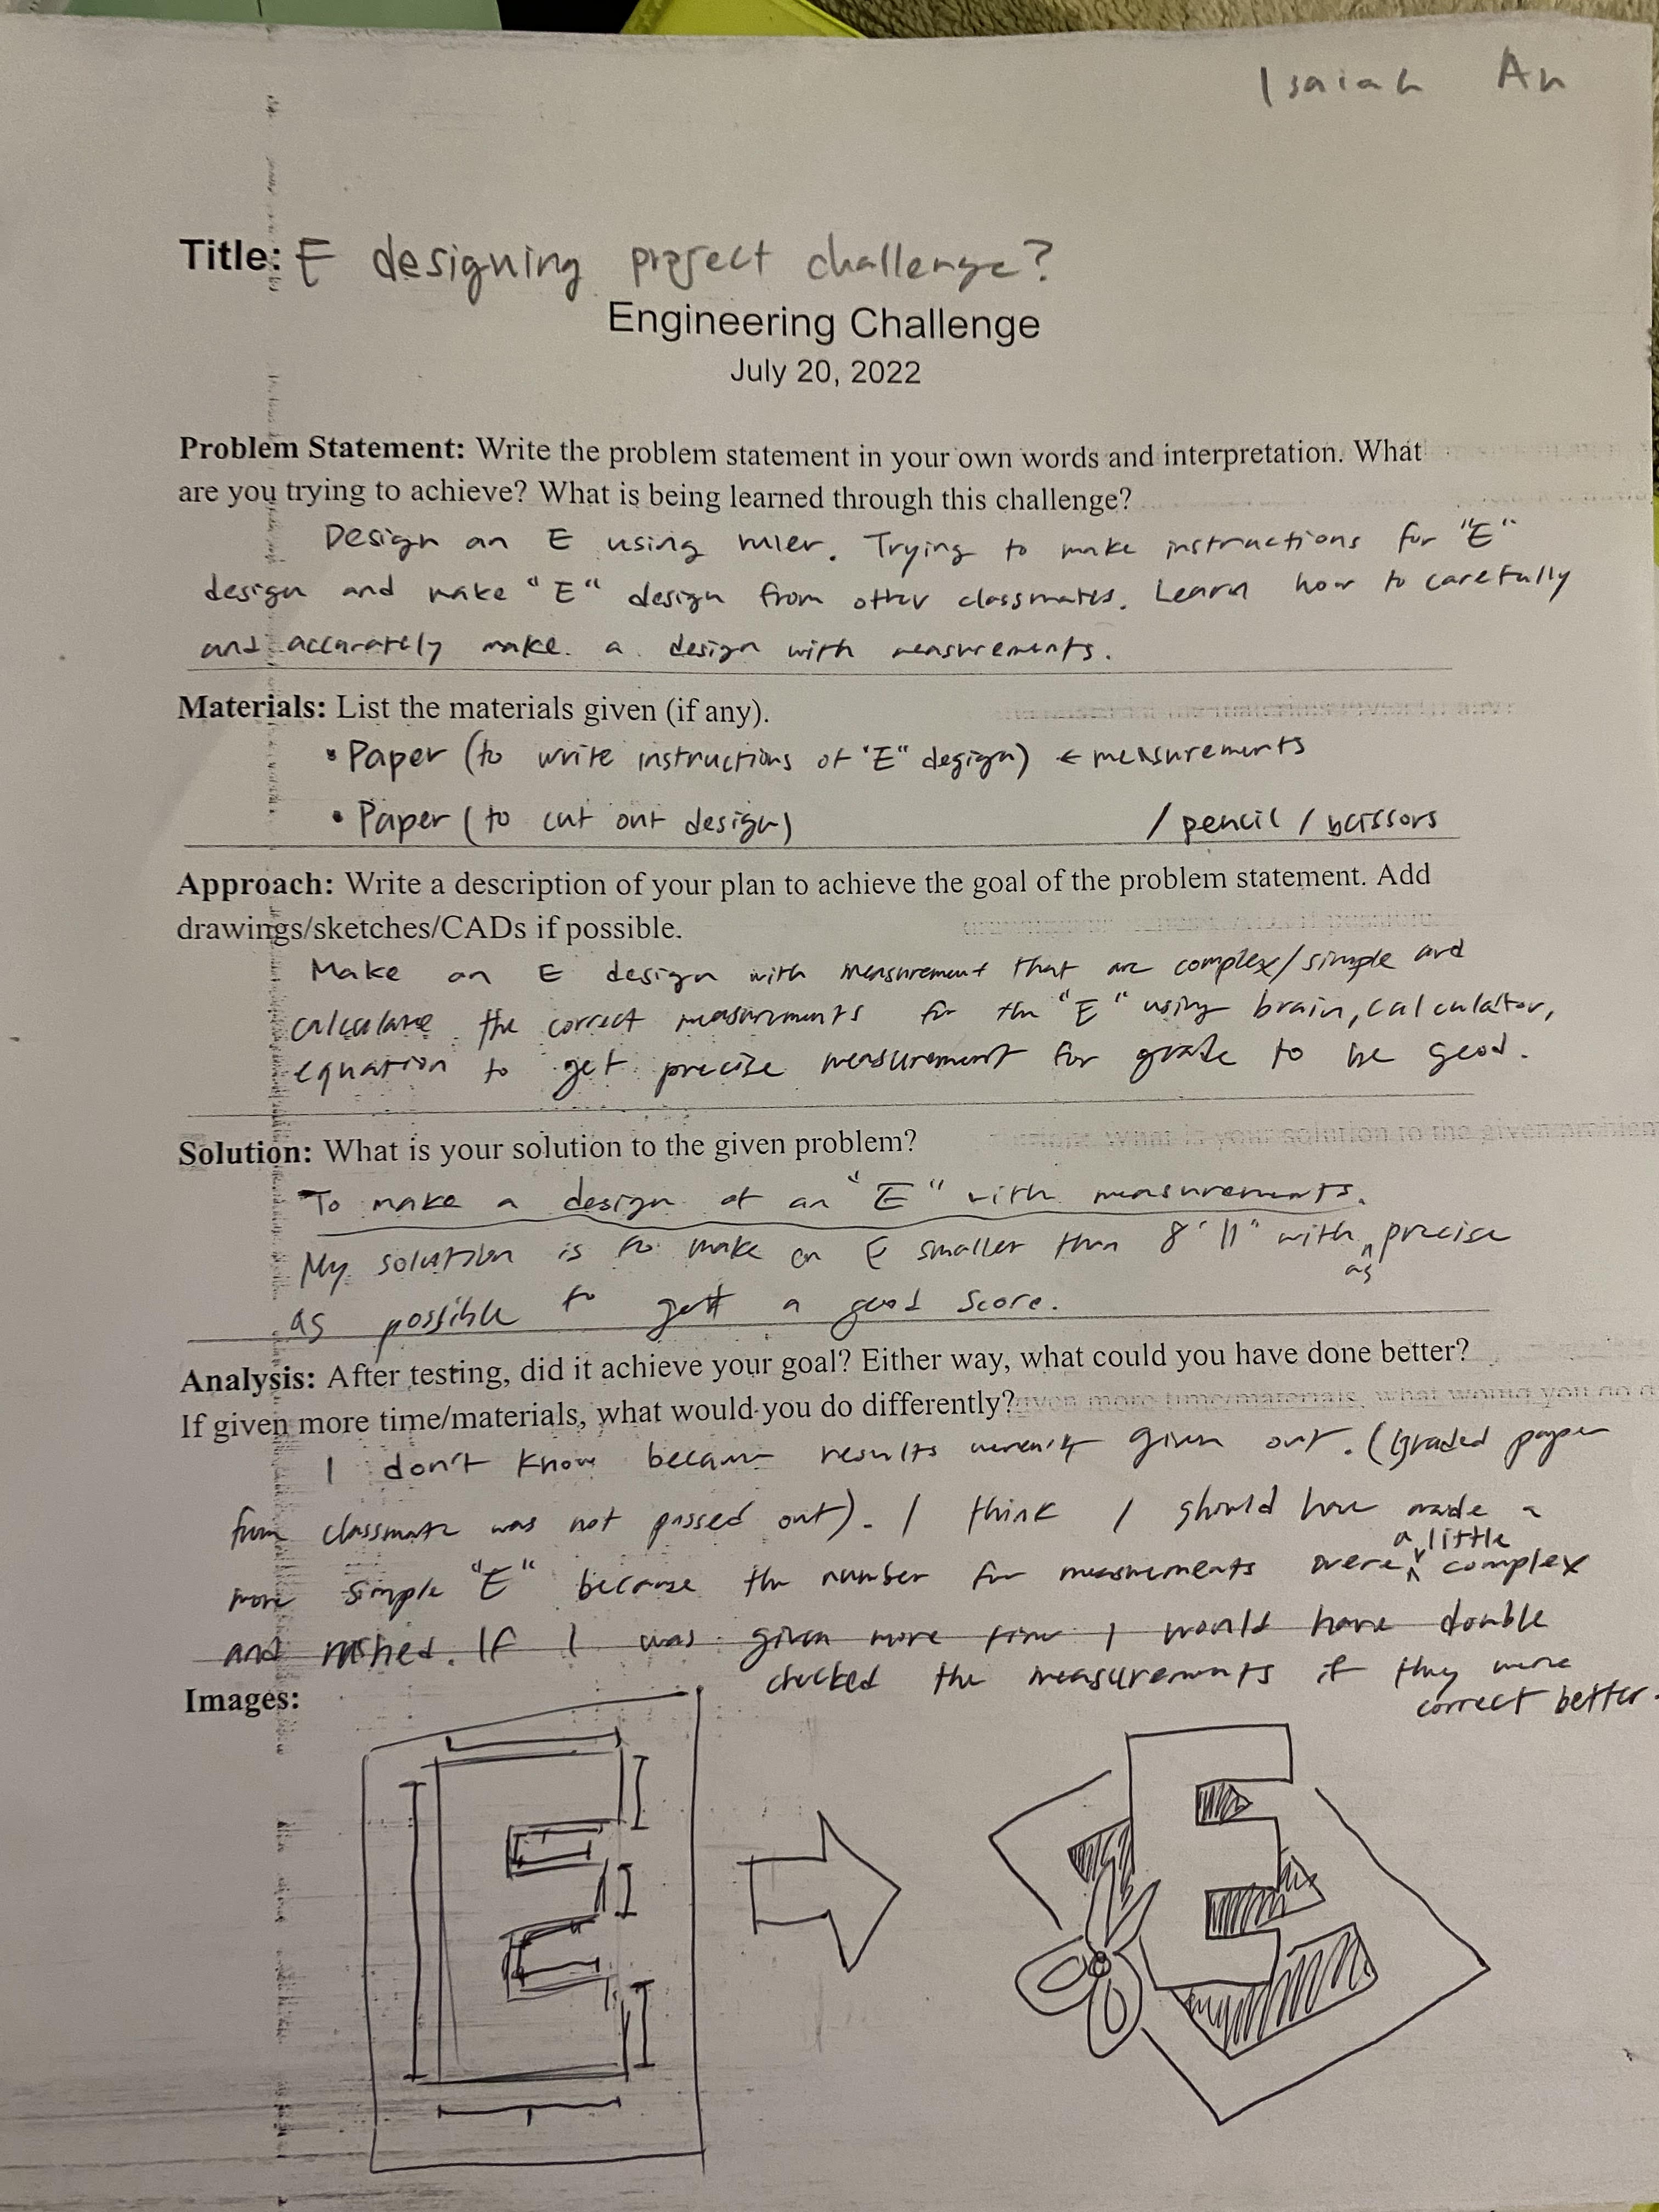 Isaiah An
Title: E designing project challenge?
Engineering Challenge
July 20, 2022
Problem Statement: Write the problem statement in your own words and interpretation. What
are you trying to achieve? What is being learned through this challenge?
Design an E using ruler. Trying to make instructions for "E"
design and make "E" design from other classmates. Learn how to carefully
and accurately make a design with measurements.
Materials: List the materials given (if any).
• Paper (to write instructions of "E" design) ← measurements
• Paper (to cut out design) / pencil / scissors
Approach: Write a description of your plan to achieve the goal of the problem statement. Add
drawings/sketches/CADs if possible.
Make an E design with measurement that are complex/simple and
calculate the correct measurements for the "E" using brain, calculator,
equation to get precise measurement for grade to be good.
Solution: What is your solution to the given problem?
To make a design of an "E" with measurements.
My solution is to make an E smaller than 8' 11" with as precise
as possible to get a good score.
Analysis: After testing, did it achieve your goal? Either way, what could you have done better?
If given more time/materials, what would you do differently?
I don't know because results weren't given out. (graded paper
from classmate was not passed out). I think I should have made a
more simple "E" because the number for measurements were a little complex
and rushed. If I was given more time I would have double
checked the measurements if they were
correct better.
Images: